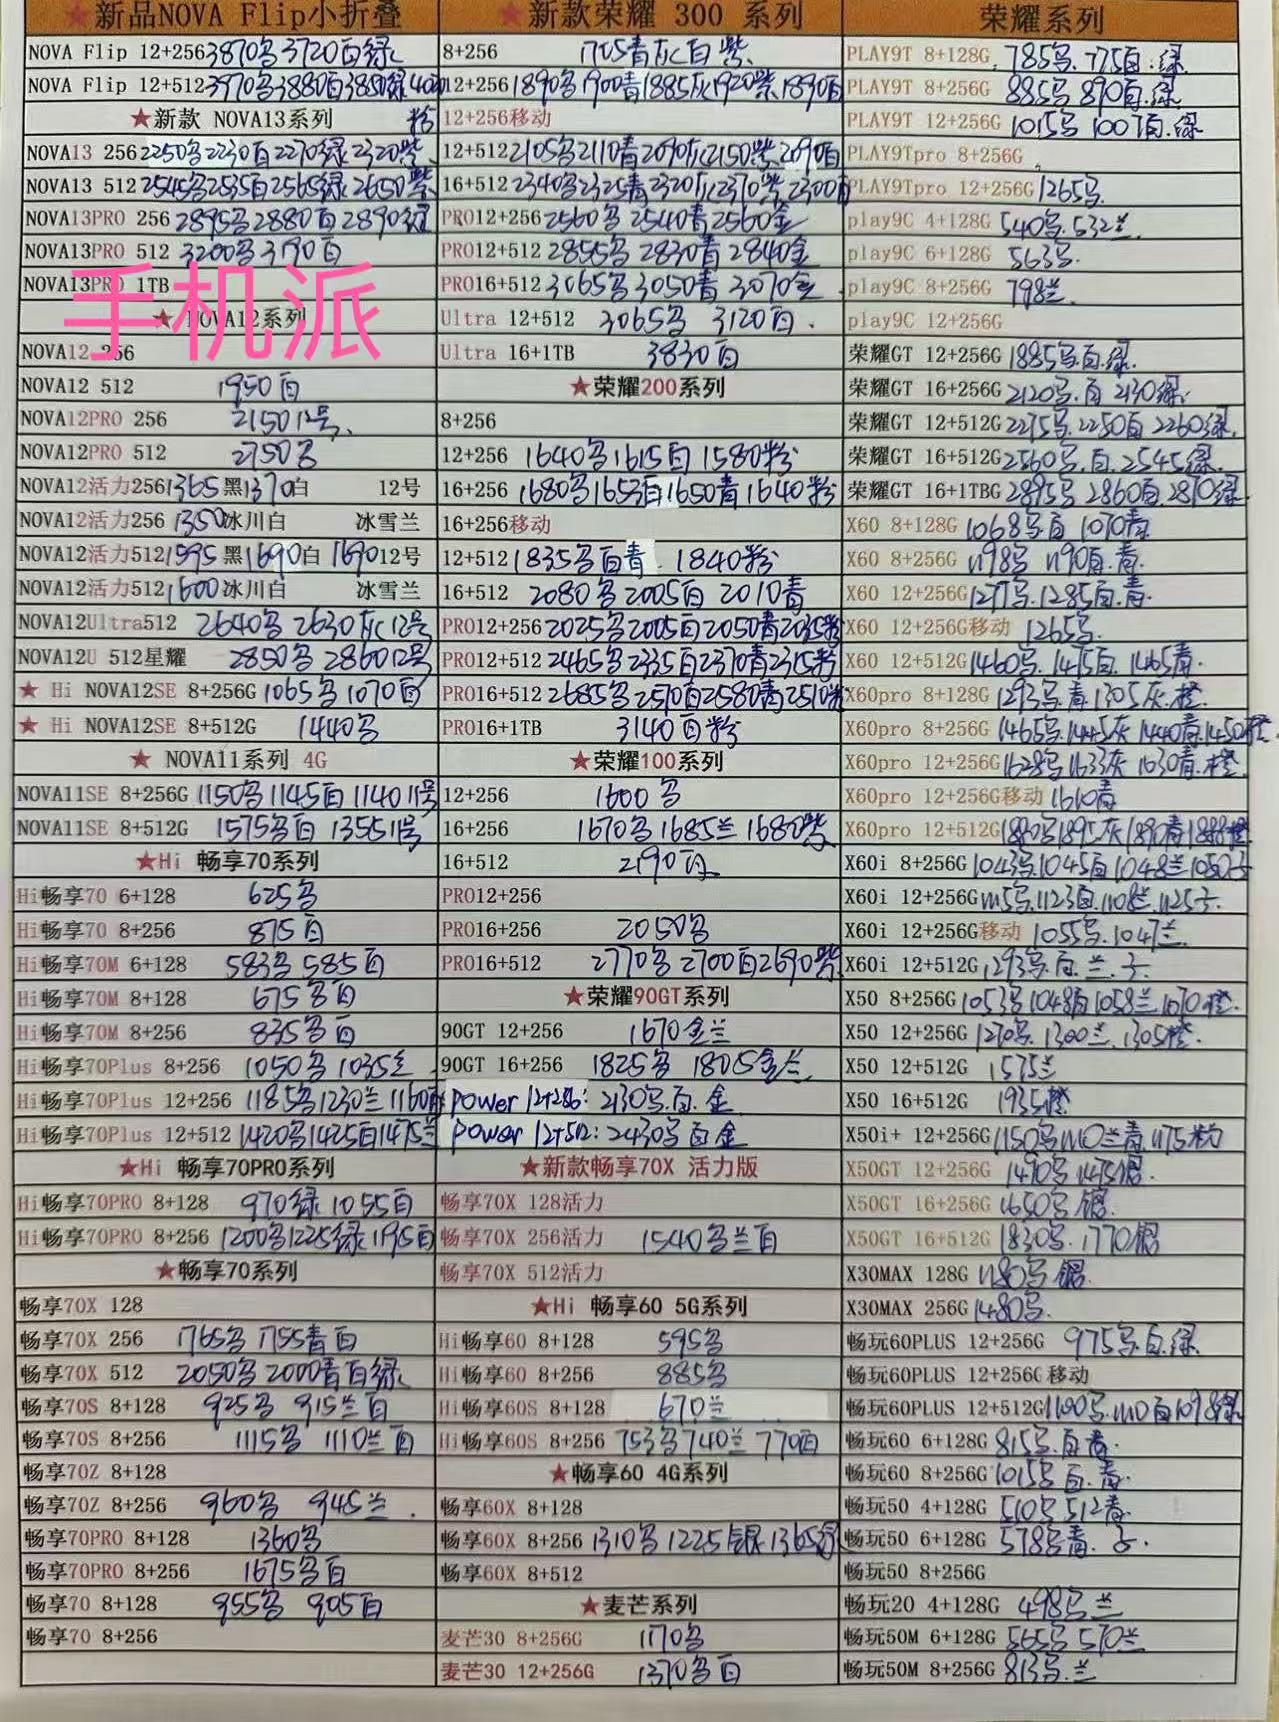 ★新品NOVA Flip小折叠
NOVA Flip 12+256 3870 3720白绿
NOVA Flip 12+512 3970 3880白3850绿
粉
★新款 NOVA13系列
NOVA13 256 2250 2230白2270绿2320紫
NOVA13 512 2545 2535白2565绿2650紫
NOVA13PRO 256 2895 2880白2890绿
NOVA13PRO 512 3200 3190白
NOVA13PRO 1TB
手机派
★ NOVA12系列
NOVA12 256
NOVA12 512 1950白
NOVA12PRO 256 2150 12号
NOVA12PRO 512 2750
NOVA12活力256 1365黑1370白 12号
NOVA12活力256 1350冰川白 冰雪兰
NOVA12活力512 1595黑1690白 1690 12号
NOVA12活力512 1600冰川白 冰雪兰
NOVA12Ultra512 2640 2630灰12号
NOVA12U 512星耀 2850 2860 12号
★ Hi NOVA12SE 8+256G 1065 1070白
★ Hi NOVA12SE 8+512G 1440
★ NOVA11系列 4G
NOVA11SE 8+256G 1150 1145白1140 11号
NOVA11SE 8+512G 1575 白 1355 11号
★Hi 畅享70系列
Hi畅享70 6+128 625
Hi畅享70 8+256 875白
Hi畅享70M 6+128 583 585白
Hi畅享70M 8+128 675 白
Hi畅享70M 8+256 835 白
Hi畅享70Plus 8+256 1050 1035兰
Hi畅享70Plus 12+256 1185 1230兰 1160
Hi畅享70Plus 12+512 1420 1425白1475兰
★Hi 畅享70PRO系列
Hi畅享70PRO 8+128 970绿 1055白
Hi畅享70PRO 8+256 1200 1225绿 1195白
★畅享70系列
畅享70X 128
畅享70X 256 1765 1755青白
畅享70X 512 2050 2000青白绿
畅享70S 8+128 925 915兰白
畅享70S 8+256 1115 1110兰白
畅享70Z 8+128
畅享70Z 8+256 960 945兰
畅享70PRO 8+128 1360
畅享70PRO 8+256 1675 白
畅享70 8+128 955 905白
畅享70 8+256
★新款荣耀 300 系列
8+256 1705青灰白紫
12+256 1890 1900青1885灰1920紫1890白
12+256移动
12+512 2105 2110青2090灰2150紫2090白
16+512 2340 2325青2320灰2370紫2300白
PRO12+256 2560 2540青2560金
PRO12+512 2855 2830青2840金
PRO16+512 3065 3050青3070金
Ultra 12+512 3065 3120白
Ultra 16+1TB 3830白
★荣耀200系列
8+256
12+256 1640 1615白1580粉
16+256 1680 1653白1650青1640粉
16+256移动
12+512 1835 白青 1840粉
16+512 2080 2005白2010青
PRO12+256 2025 2005白2050青2035粉
PRO12+512 2465 2335白2370青2315粉
PRO16+512 2685 2570白2580青2510粉
PRO16+1TB 3140白粉
★荣耀100系列
12+256 1600
16+256 1670 1685兰1680紫
16+512 2190白
PRO12+256
PRO16+256 2050
PRO16+512 2770 2700白2690紫
★荣耀90GT系列
90GT 12+256 1670金兰
90GT 16+256 1825 1805金兰
Power 12+256: 2130 白 金
Power 12+512: 2430 白金
★新款畅享70X 活力版
畅享70X 128活力
畅享70X 256活力 1540 兰白
畅享70X 512活力
★Hi 畅享60 5G系列
Hi畅享60 8+128 595
Hi畅享60 8+256 885
Hi畅享60S 8+128 670兰
Hi畅享60S 8+256 753 740兰 770白
★畅享60 4G系列
畅享60X 8+128
畅享60X 8+256 1310 1225银1365绿
畅享60X 8+512
★麦芒系列
麦芒30 8+256G 1170
麦芒30 12+256G 1370 白
荣耀系列
PLAY9T 8+128G 785 775白绿
PLAY9T 8+256G 885 890白绿
PLAY9T 12+256G 1015 1007白绿
PLAY9Tpro 8+256G
PLAY9Tpro 12+256G 1265
play9C 4+128G 540 532兰
play9C 6+128G 563
play9C 8+256G 798兰
play9C 12+256G
荣耀GT 12+256G 1885 白绿
荣耀GT 16+256G 2120 白 2130绿
荣耀GT 12+512G 2275 2250白2260绿
荣耀GT 16+512G 2560 白 2545绿
荣耀GT 16+1TBG 2895 2860白2870绿
X60 8+128G 1068 白 1070青
X60 8+256G 1198 1190白青
X60 12+256G 1277 1285白青
X60 12+256G移动 1265
X60 12+512G 1460 1475白 1465青
X60pro 8+128G 1293 青1305灰橙
X60pro 8+256G 1465 1445灰1440青1450橙
X60pro 12+256G 1628 1633灰1630青橙
X60pro 12+256G移动 1610青
X60pro 12+512G 1895灰1890青1888橙
X60i 8+256G 1043 1045白1048兰1050
X60i 12+256G 1115 1123白1108兰1125
X60i 12+256G移动 1055 1047兰
X60i 12+512G 1293 白兰
X50 8+256G 1053 1048白1058兰1070橙
X50 12+256G 1270 1300兰 1305橙
X50 12+512G 1575兰
X50 16+512G 1935橙
X50i+ 12+256G 1150 1140兰青1175粉
X50GT 12+256G 1490 1475银
X50GT 16+256G 1650 银
X50GT 16+512G 1830 1770银
X30MAX 128G 1180 银
X30MAX 256G 1480
畅玩60PLUS 12+256G 975 白绿
畅玩60PLUS 12+256G移动
畅玩60PLUS 12+512G 1100 1110白1098绿
畅玩60 6+128G 815 白青
畅玩60 8+256G 1015 白青
畅玩50 4+128G 510 512青
畅玩50 6+128G 578 青
畅玩50 8+256G
畅玩20 4+128G 498 兰
畅玩50M 6+128G 565 570兰
畅玩50M 8+256G 813 兰